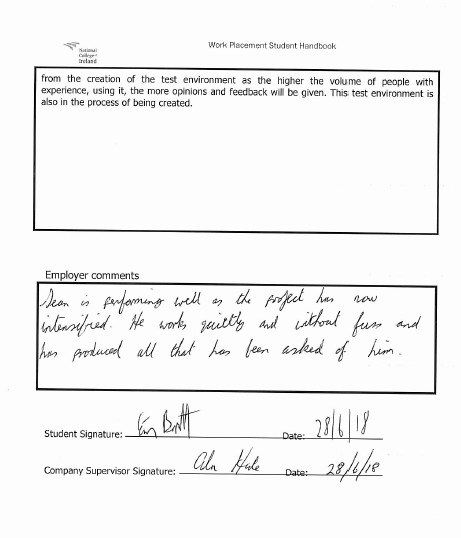 National
College of
Ireland
Work Placement Student Handbook
from the creation of the test environment as the higher the volume of people with
experience, using it, the more opinions and feedback will be given. This test environment is
also in the process of being created.
Employer comments
Sean is performing well as the project has now
intensified. He works quietly and without fuss and
has produced all that has been asked of him.
Student Signature:
Date: 28/6/18
Company Supervisor Signature:
Date: 28/6/18